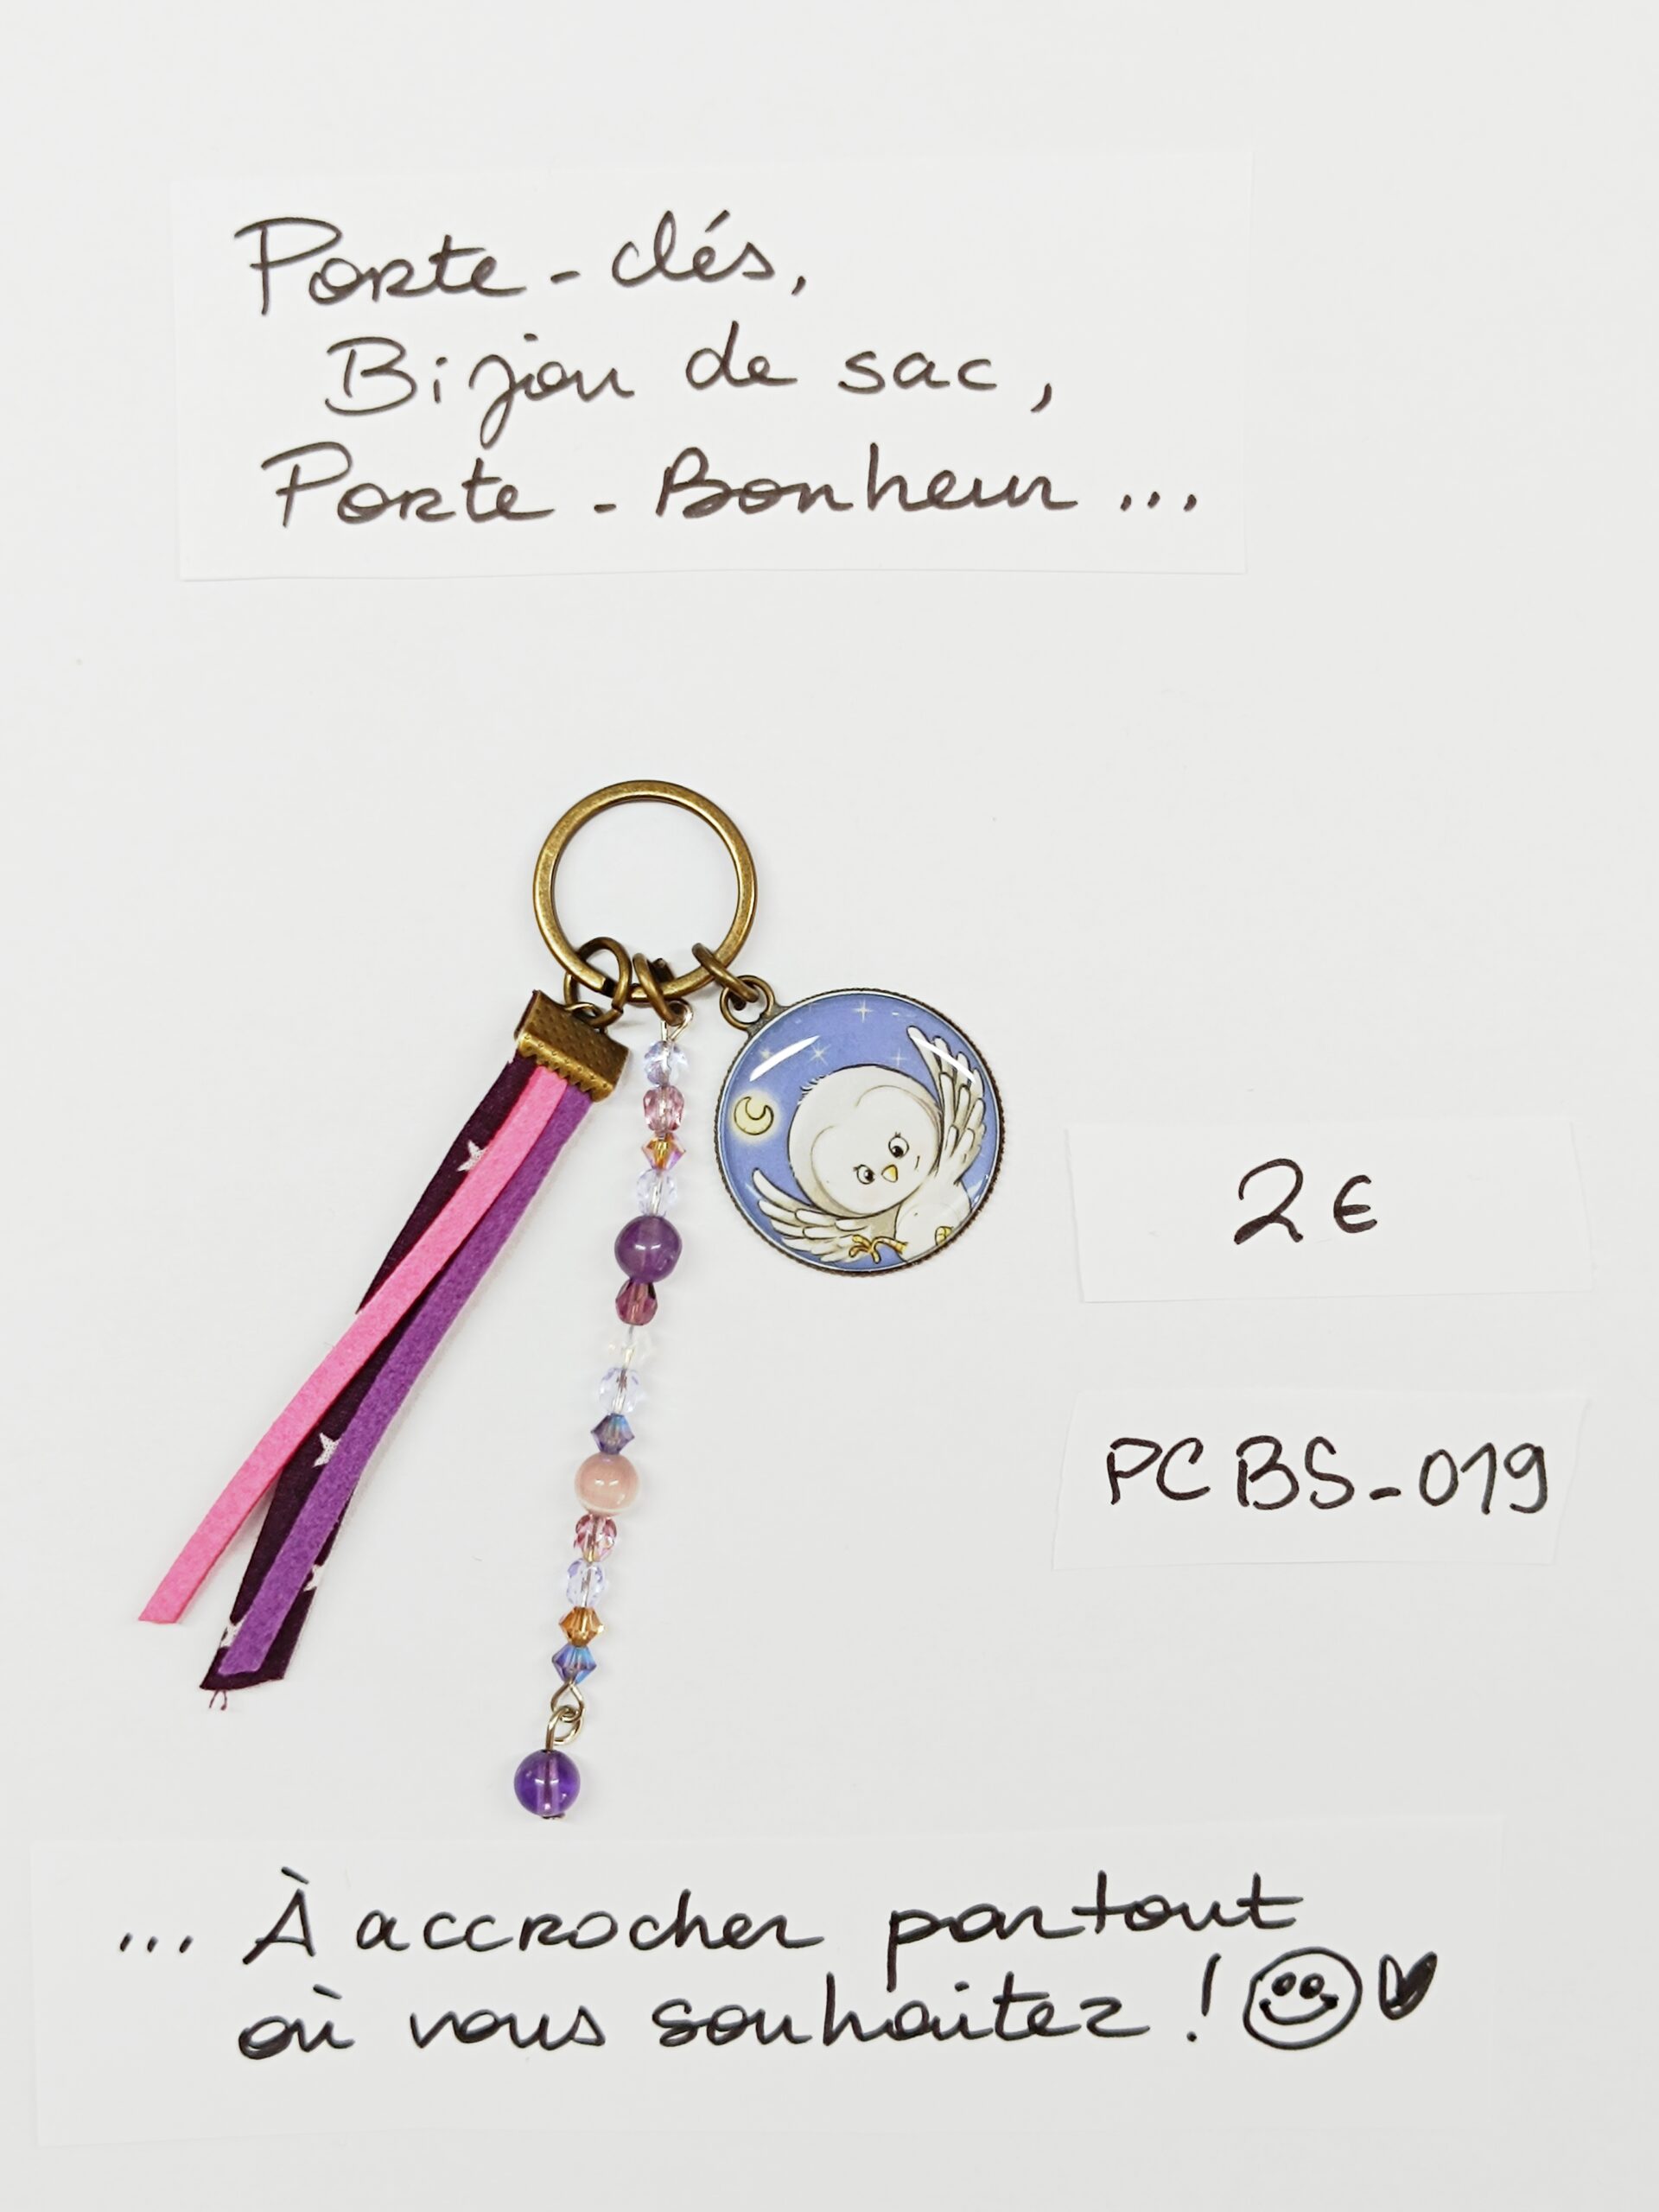 Porte-clés,
Bijou de sac,
Porte-Bonheur...
2€
PCBS-019
... À accrocher partout
où vous souhaitez !